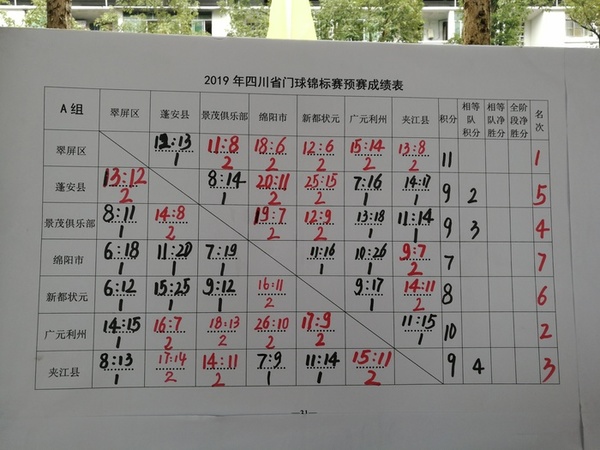 2019 年四川省门球锦标赛预赛成绩表
A 组 翠屏区 蓬安县 景茂俱乐部 绵阳市 新都状元 广元利州 夹江县 积分 相等队积分 相等队净胜分 全阶段净胜分 名次
翠屏区 12:13 11:8 18:6 12:6 15:14 13:8 11 1
1 2 2 2 2 2
蓬安县 13:12 8:14 20:11 25:15 7:16 14:17 9 2 5
2 1 2 2 1 1
景茂俱乐部 8:11 14:8 19:7 12:9 13:18 11:14 9 3 4
1 2 2 2 1 1
绵阳市 6:18 11:20 7:19 11:16 10:26 9:7 7 7
1 1 1 1 1 2
新都状元 6:12 15:25 9:12 16:11 9:17 14:11 8 6
1 1 1 2 1 2
广元利州 14:15 16:7 18:13 26:10 17:9 11:15 10 2
1 2 2 2 2 1
夹江县 8:13 17:14 14:11 7:9 11:14 15:11 9 4 3
1 2 2 1 1 2
—21—